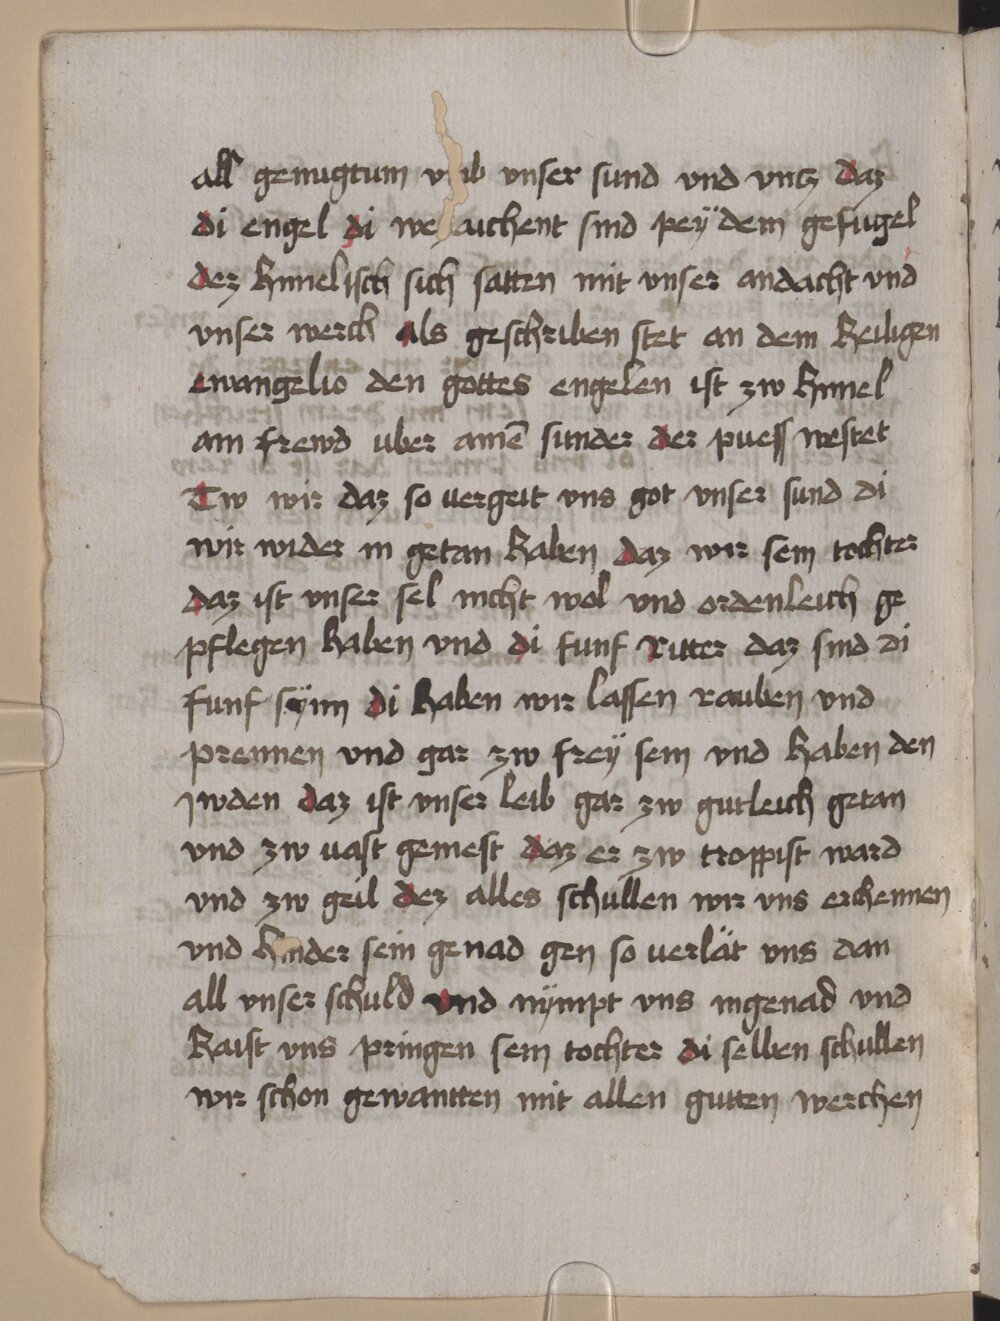 all genugtum vmb vnser sund vnd vntz daz
di engel di we auchent sind pey dem gefugel
dez himelisch sich satten mit vnser andacht vnd
vnser werch als geschriben stet an dem heiligen
ewangelio den gottes engelen ist zw himel
ain frewd uber ainē sunder der puess westet
Tw wir daz so uergeit vns got vnser sund di
wir wider in getan haben daz wir sein tochter
daz ist vnser sel nicht wol vnd ordenleich ge
pflegen haben vnd di funf Ritter daz sind di
funf sÿnn di haben wir lassen rauben vnd
prennen vnd gar zw freÿ sein vnd haben den
jwden daz ist vnser leib gar zw gutleich getan
vnd zw uast gemest daz er zw troppist ward
vnd zw geil dez alles schullen wir vns erchennen
vnd hinder sein genad gen so uerlät vns dan
all vnser schuld vnd nÿmpt vns in genad vnd
haist vns pringen sein tochter di selben schullen
wir schon gewantten mit allen gutten werchen